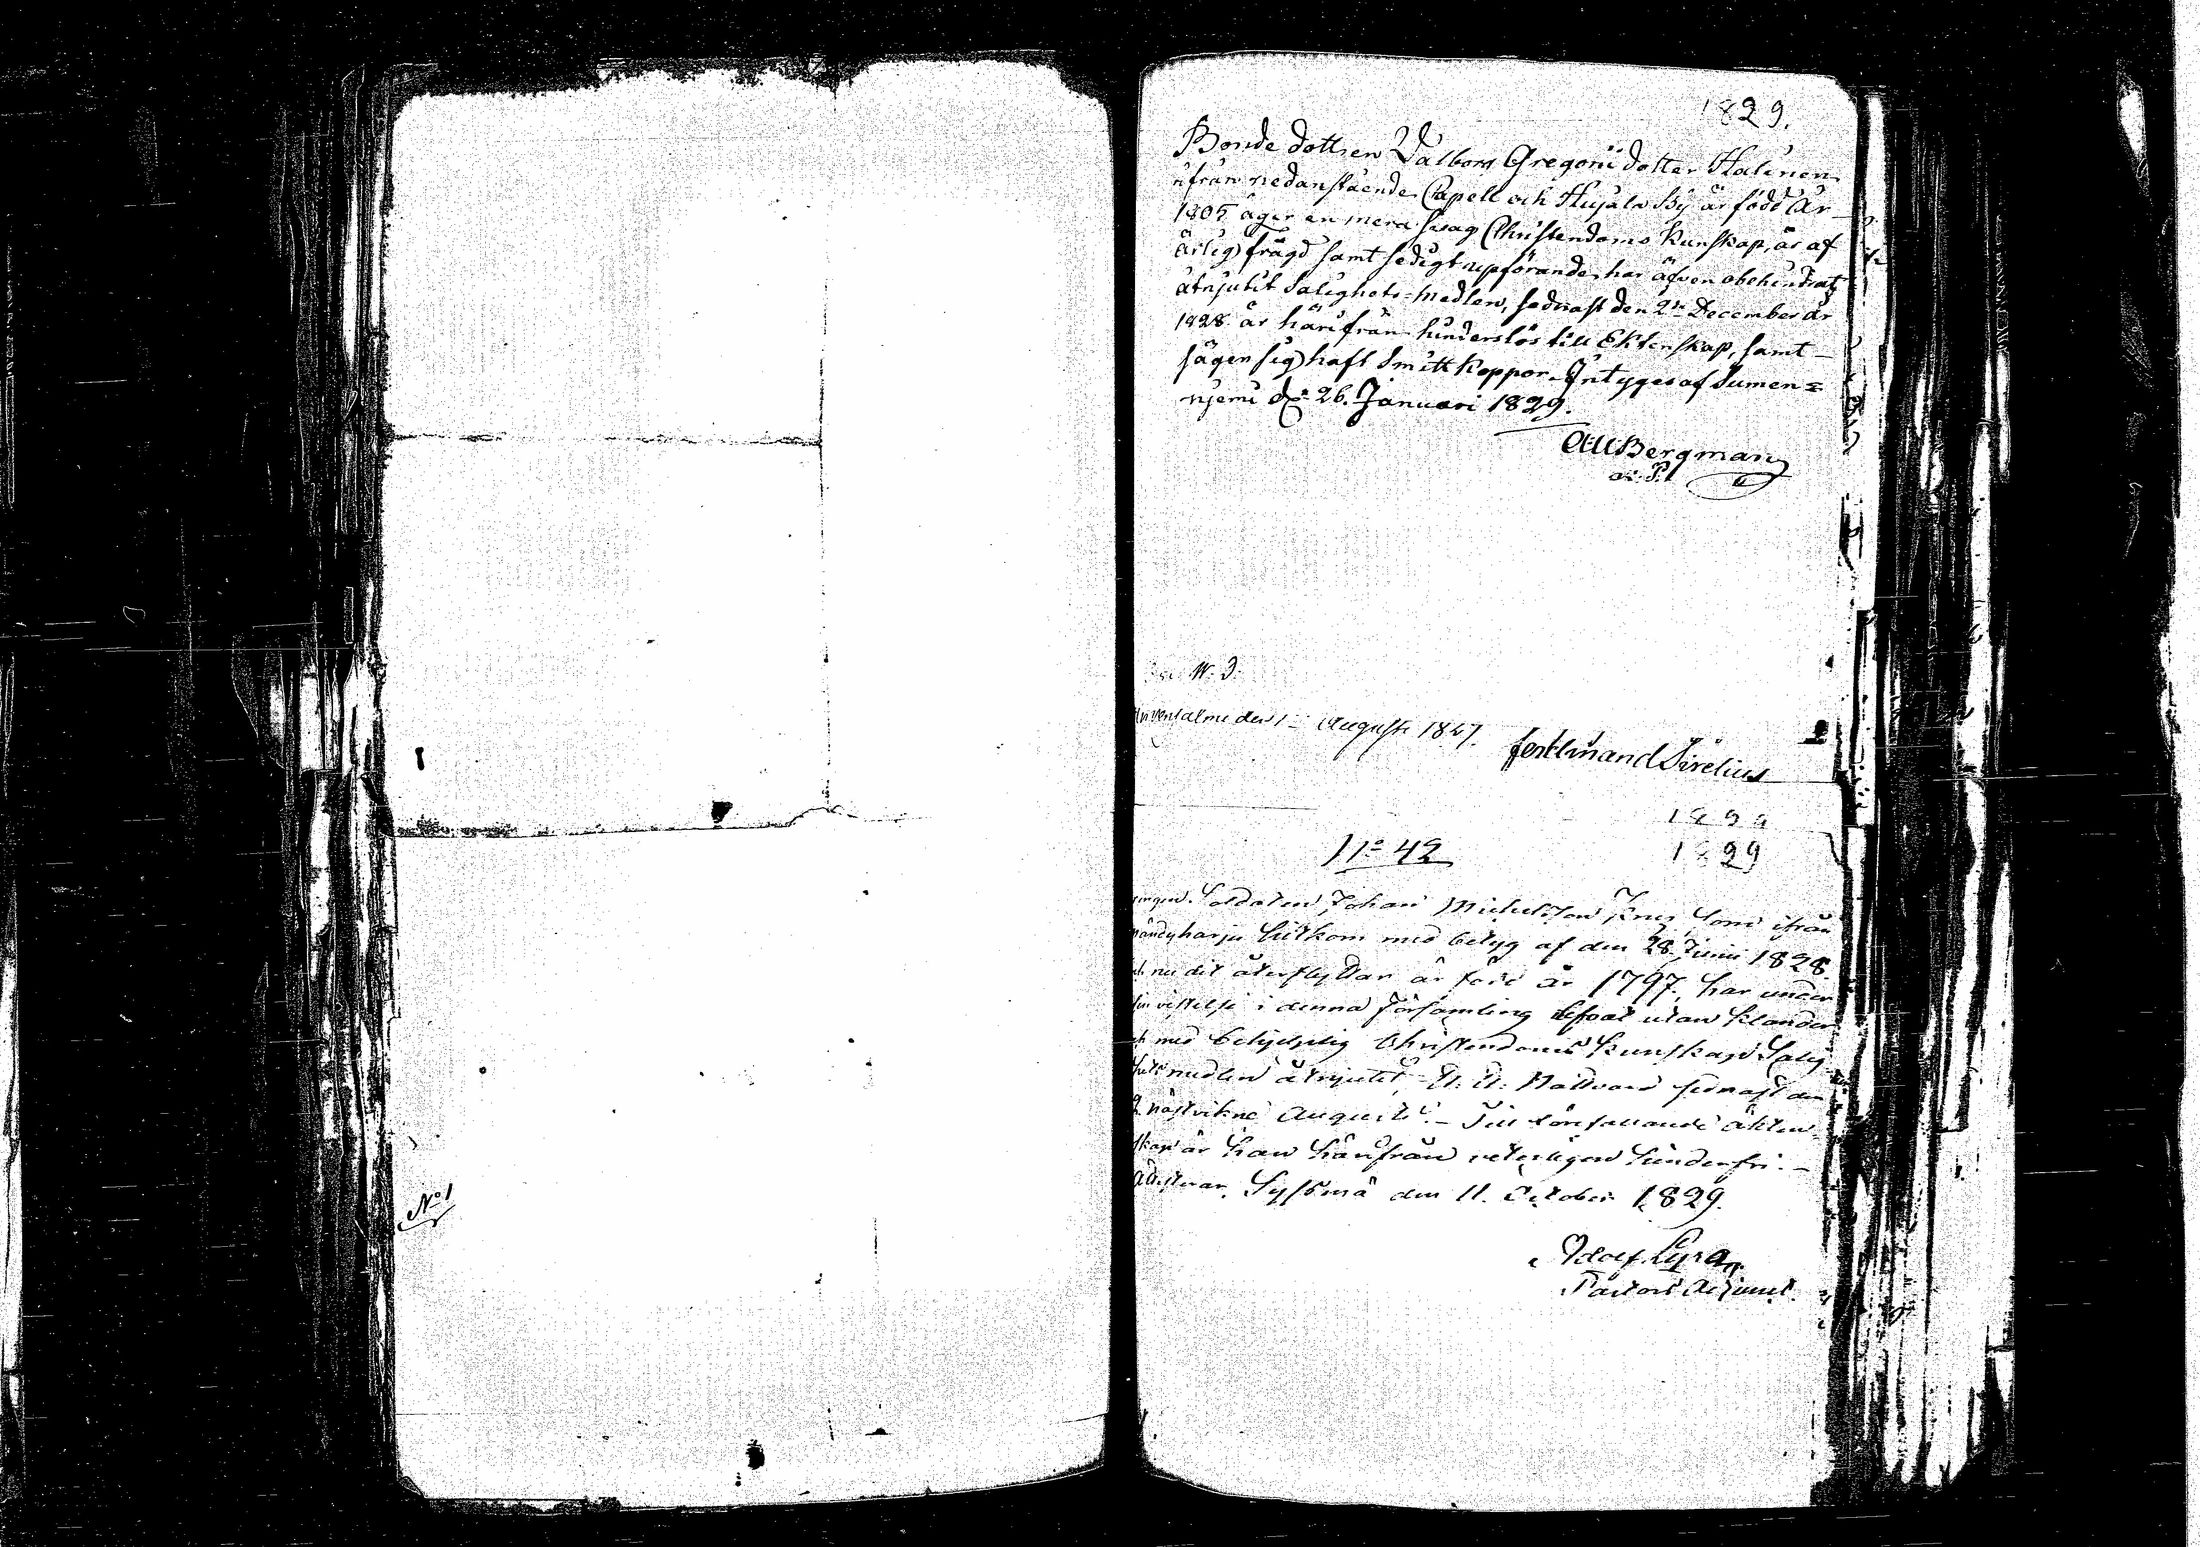 N:o 1
1829.
Bonde dottren Valborg Gregorii dotter Halinen
ifrån nedanstående Capell och Hujala By är född År
1805 äger en mera svag Christendoms Kunskap, är af
ärlig frägd samt sedigt uppförande, har äfven obehindrat
åtnjutit Salighets-medlen, sednast den 2:n December år
1828 är härifrån hinderslös till Ektenskap, samt
säger sig haft Smittkoppor. Intygas af Sumen=
njemi d. 26. Januari 1829.
Bergman
N. 3.
den 1 Augusti 1827.
Ferdinand Sirelius
1829
1829
N:o 42
Soldaten Johan Michelsson som ifrån
Mändyharju hitkom med betyg af den 28 Junii 1828.
och nu dit återflyttar är född år 1797, har under
sin vistelse i denna Församling lefvat utan klander
och med behjelplig Christendoms Kunskap Salig=
medlen åtnjutit, H. H. Nattvard sednast den
nästvikne Augusti. - Till lönfallande äkten=
skap är han härifrån veterligen hinderfri. -
Attesterar, Sysmä den 11. October 1829.
Adolf Lyra
Pastors Adjunct.